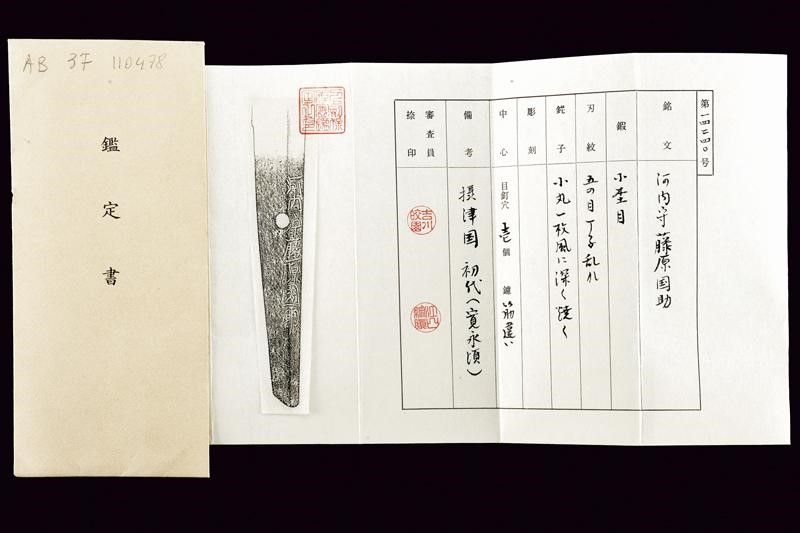 AB 3F 110478
鑑定書
第一四二四〇号
銘文 河内守藤原国助
鍜 小杢目
刃紋 五の目丁子乱れ
鋩子 小丸一枚風に深く焼く
彫刻
中心 目釘穴 壱個 鑢 筋違い
備考 摂津国 初代(寛永頃)
審査員捺印